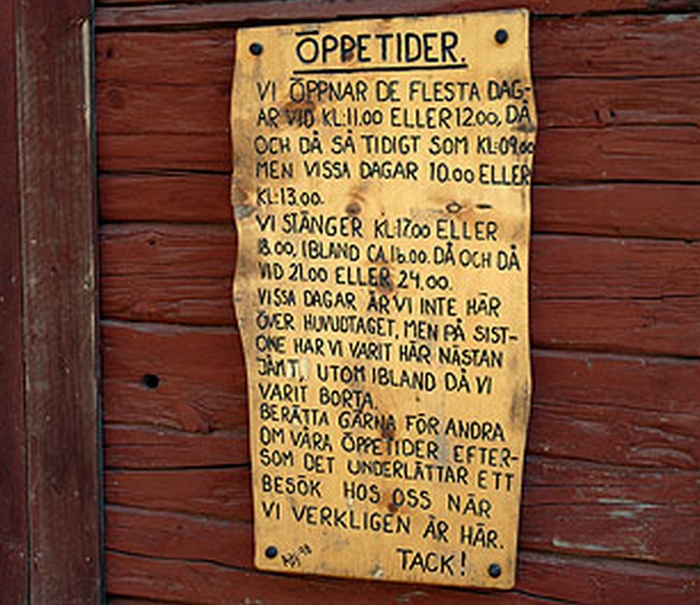 ÖPPETIDER.
VI ÖPPNAR DE FLESTA DAG-
AR VID KL:11.00 ELLER 12.00, DÅ
OCH DÅ SÅ TIDIGT SOM KL:09.00
MEN VISSA DAGAR 10.00 ELLER
KL:13.00.
VI STÄNGER KL:17.00 ELLER
18.00, IBLAND CA.16.00. DÅ OCH DÅ
VID 21.00 ELLER 24.00.
VISSA DAGAR ÄR VI INTE HÄR
ÖVER HUVUDTAGET, MEN PÅ SIST-
ONE HAR VI VARIT HÄR NÄSTAN
JÄMT, UTOM IBLAND DÅ VI
VARIT BORTA.
BERÄTTA GÄRNA FÖR ANDRA
OM VÅRA ÖPPETIDER EFTER-
SOM DET UNDERLÄTTAR ETT
BESÖK HOS OSS NÄR
VI VERKLIGEN ÄR HÄR.
TACK!